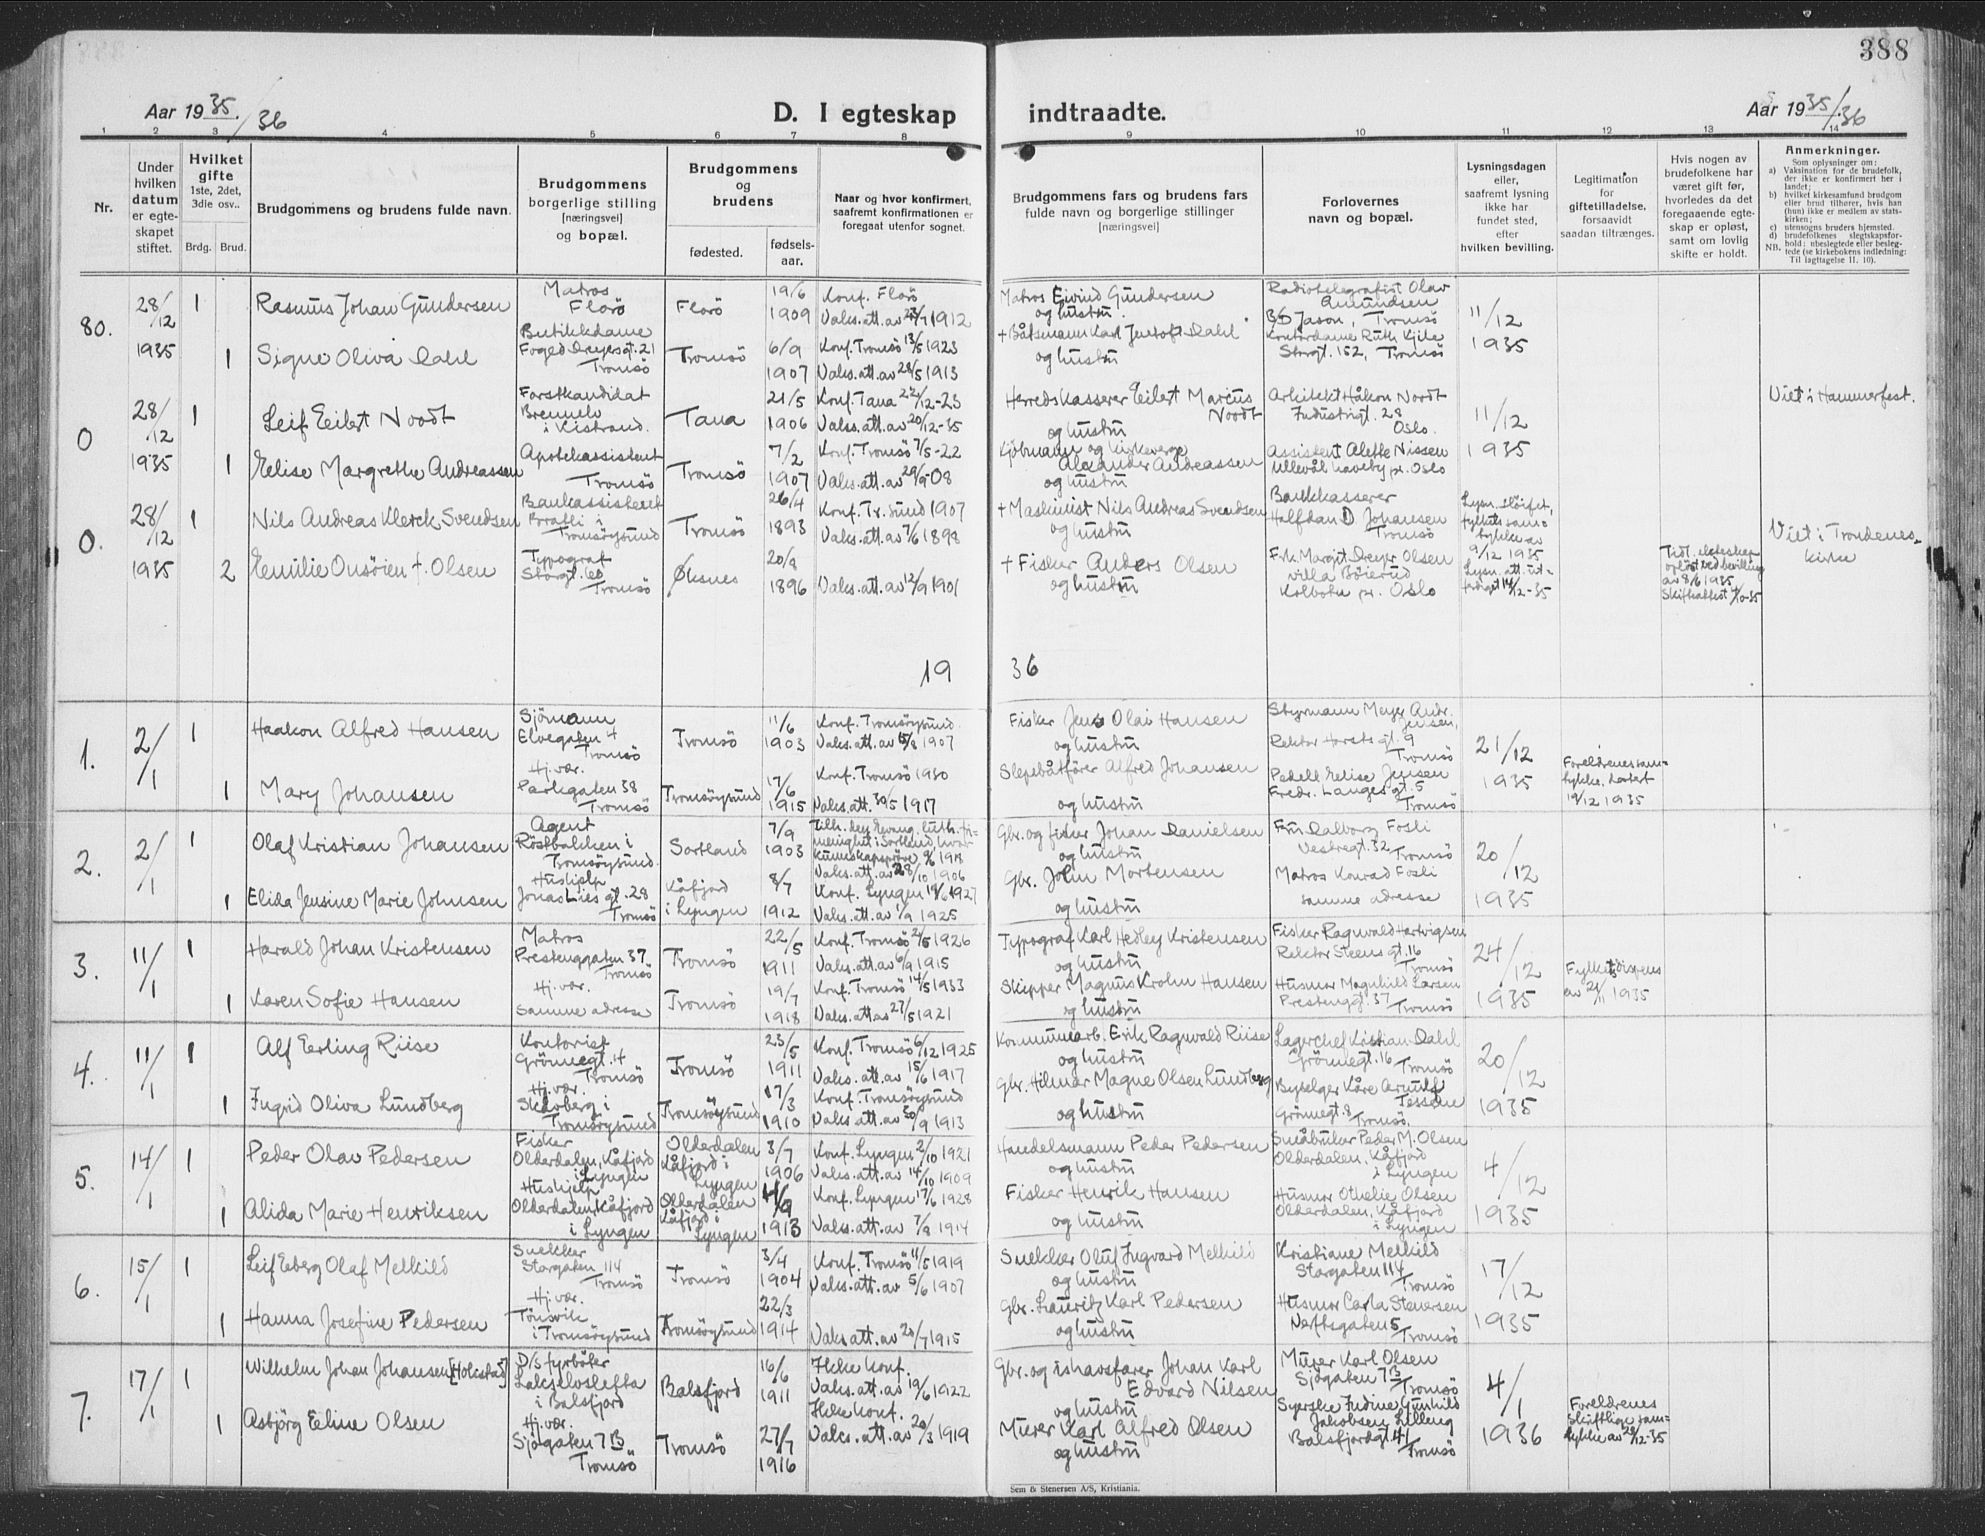 388
Aar 1935/36
D. I egteskap indtraadte.
Aar 1935/36
1 2 3 4 5 6 7 8 9 10 11 12 13 14
Nr.
Under hvilken datum er egteskapet stiftet.
Hvilket gifte 1ste, 2det, 3die osv..
Brdg. Brud.
Brudgommens og brudens fulde navn.
Brudgommens borgerlige stilling [næringsvei] og bopæl.
Brudgommens og brudens
fødested.
fødselsaar.
Naar og hvor konfirmert, saafremt konfirmationen er foregaat utenfor sognet.
Brudgommens fars og brudens fars fulde navn og borgerlige stillinger [næringsvei]
Forlovernes navn og bopæl.
Lysningsdagen eller, saafremt lysning ikke har fundet sted, efter hvilken bevilling.
Legitimation for giftetilladelse, forsaavidt saadan tiltrænges.
Hvis nogen av brudefolkene har været gift før, hvorledes da det foregaaende egteskap er opløst, samt om lovlig skifte er holdt.
Anmerkninger.
Som oplysninger om:
a) Vaksination for de brudefolk, der ikke er konfirmert her i landet;
b) hvilket kirkesamfund brudgom eller brud tilhører, hvis han (hun) ikke er medlem av statskirken;
c) utensogns bruders hjemsted.
d) brudefolkenes slegtskapsforhold: nbeslegtede eller beslegtede (se kirkebokens indledning:
NB. Til Iagttagelse II. 10).
80. 28/12 1935 1 Rasmus Johan Gundersen
Matros Florö
Florö 19/6 1909
Konf. Florö
Vaks.att.av 1912
Matros Eivind Gundersen og hustru.
Radiotelegrafist Olav Amundsen
B/D Jason, Tromsö
11/12 1935
1 Signe Oliva Dahl
Butikkdame
Foged Dreyersgt. 21
Tromsö
Tromsö 6/9 1907
Konf. Tromsö 13/5 1923
Vaks.att.av 28/5 1913
+ Båtsmann Karl Jentoft Dahl og hustru
Kontordame Ruth Kjile
Storgt. 152, Tromsö
0 28/12 1935 1 Leif Eilert Noodt
Forstkandidat
Brennelv
i Kistrand.
Tana 21/5 1906
Konf. Tana 22/12-23
Vaks.att.av 20/12-35
Herredskasserer Eilert Marcus Noodt og hustru
Arkitekt Håkon Nordt
Industrigt. 28
Oslo.
11/12 1935
Viet i Hammerfest.
1 Elise Margrethe Andreassen
Apotekassistent
Tromsö
Tromsö 7/2 1907
Konf. Tromsö 7/5-22
Vaks.att.av 29/9-08
Kjöbmann og kirkeverge
Alexander Andreassen
og hustru
Assistent Alette Nissen
Ullevål haveby pr. Oslo
0. 28/12 1935 1 Nils Andreas Klerck Svendsen
Bankassistent
i
Tromsöysund
Tromsö 26/4 1893
Konf. Tr.sund 1907
Vaks.att.av 7/6 1898
+ Maskinist Nils Andreas Svendsen
og hustru
Bankkasserer
Halfdan D Johansen
Tromsö
Lysn. slöifet,
fylkets samtykke av
9/12 1935
Viet i Trondenes
kirke
2 Emilie Onsöien f. Olsen
Typograf
Storgt. 60
Tromsö
Øksnes 20/9 1896
Vaks.att.av 12/9 1901
+ Fisker Anders Olsen
og hustru
Frk. Margit Dreyer Olsen
villa Böierud
Kolbotn pr. Oslo
Lysn. att. utferdiget 14/12-35
Tidl. ekteskap
oplöst ved bevilling
av 8/6 1935
Skifteattest 7/10-35
19 36
1. 2/1 1 Haakon Alfred Hansen
Sjömann
Elvegaten 4
Tromsö
Tromsö 11/6 1903
Konf. Tromsöysund.
Vaks.att.av 15/8 1907
Fisker Jens Olai Hansen
og hustru
Styrmann Meyer Andr. Jensen,
Rektor Horsts gt. 9
Tromsö
21/12 1935
Foreldrenes samtykke, datert
19/12 1935
1 Mary Johansen
Hj.vær.
Parkgaten 38
Tromsö
Tromsöysund 17/6 1915
Konf. Tromsö 1930
Vaks.att. 30/5 1917
Slepebåtförer Alfred Johansen
og hustru
Pedell Elise Jensen
Fredr. Langes gt. 5
Tromsö
2. 2/1 1 Olaf Kristian Johansen
Agent
Röstbakken i
Tromsöysund.
Sortland 7/9 1903
Tilh. den Evang. luth. frimenighet i Sortland, hvor
kunnskapspröve 9/6 1918
Vaks.att.av 28/10 1906
Gbr. og fisker Johan Danielsen
og hustru
Fru Dalborg Fosli
Vestregt. 32 Tromsö
20/12 1935
1 Elida Jensine Marie Johnsen
Hushjelp
Jonas Lies gt. 28
Tromsö
Kåfjord
i Lyngen 8/7 1912
Konf. Lyngen 19/6 1927
Vaks.att.av 1/9 1925
Gbr. John Mortensen
og hustru
Matros Konrad Fosli
samme adresse
3. 11/1 1 Harald Johan Kristensen
Matros
Prestenggaten 37
Tromsö
Tromsö 22/5 1911
Konf. Tromsö 2/5 1926
Vaks.att.av 6/9 1915
Typograf Karl Hedley Kristensen
og hustru
Fisker Ragnvald Hartvigsen
Rektor Steens gt. 16
Tromsö
24/12 1935
Fylkesdispens
av 21/11 1935
1 Karen Sofie Hansen
Hj.vær.
samme adresse
Tromsö 19/7 1918
Konf. Tromsö 14/5 1933
Vaks.att.av 27/5 1921
Skipper Magnus Krohn Hansen
og hustru
Husmor Magnhild Larsen
Prestenggt. 37
Tromsö
4. 11/1 1 Alf Erling Riise
Kontorist
Grönnegt. 14
Tromsö
Tromsö 23/5 1911
Konf. Tromsö 6/12 1925
Vaks.att.av 15/6 1917
Kommunearb. Erik Ragnvald Riise
og hustru
Lagerchef Kristian Dahl
Grönnegt. 16
Tromsö
20/12 1935
1 Ingrid Oliva Lundberg
Hj.vær.
Skavberg i
Tromsöysund
Tromsöysund 17/3 1910
Konf. Tromsöysund
Vaks.att.av 30/9 1913
Gbr. Hilmar Magne Olsen Lundberg
og hustru
Byselger Kåre Arnulf Tessem
Grönnegt. 8
Tromsö.
5. 14/1 1 Peder Olav Pedersen
Fisker
Olderdalen, Kåfjord
i Lyngen
Olderdalen
Kåfjord i
Lyngen 3/7 1906
Konf. Lyngen 2/10 1921
Vaks.att.av 14/10 1909
Handelsmann Peder Pedersen
og hustru
Småbruker Peder M. Olsen
Olderdalen, Kåfjord
i Lyngen
4/12 1935
1 Alida Marie Henriksen
Hushjelp
Olderdalen, Kåfjord
i Lyngen
Olderdalen
Kåfjord i
Lyngen 4/9 1913
Konf. Lyngen 17/6 1928
Vaks.att.av 7/8 1914
Fisker Henrik Hansen
og hustru
Husmor Othelie Olsen
Olderdalen, Kåfjord
i Lyngen
6. 15/1 1 Leif Eberg Olaf Melkild
Snekker
Storgaten 114
Tromsö
Tromsö 3/4 1904
Konf. Tromsö 11/5 1919
Vaks.att.av 5/6 1907
Snekker Oluf Ingvard Melkild
og hustru
Kristiane Melkild
Storgaten 114
Tromsö
17/12 1935
1 Hanna Josefine Pedersen
Hj.vær.
Tönsvik
i Tromsöysund
Tromsöysund 22/3 1914
Vaks.att.av 20/7 1915
Gbr. Lauritz Karl Pedersen
og hustru
Husmor Carla Stenersen
Nerftsgaten 5
Tromsö
7. 17/1 1 Wilhelm Johan Johansen [Holmstad]
D/S fyrböter
Lakselvslefta
i Balsfjord
Balsfjord 16/6 1911
Ikke konf.
Vaks.att.av 19/6 1922
Gbr. og ishavsfarer Johan Karl
Edvard Nilsen
og hustru
Murer Karl Olsen
Sjögaten 7B
Tromsö
4/1 1936
Foreldrenes
skriftlige samtykke av 28/12-35
1 Asbjörg Eeline Olsen
Hj.vær.
Sjögaten 7B
Tromsö
Tromsö 27/7 1916
Ikke konf.
Vaks.att.av 20/3 1919
Murer Karl Alfred Olsen
og hustru
Syerske Judine Gunhild
Jakobsen Lilleng
Balsfjordgt. 41
Tromsö
Sem & Stenersen A/S, Kristiania.